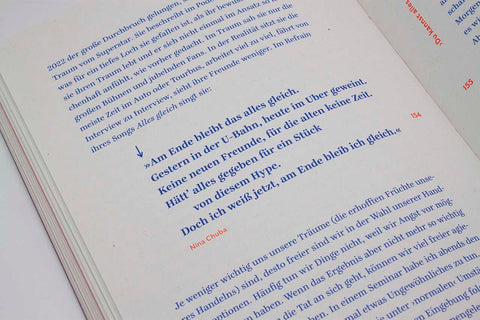 2022 der große Durchbruch gelungen,
Traum vom Superstar. Sie beschreibt im Pod
was für ein tiefes Loch sie gefallen ist, als ihr bewu
sie ihren Traum lebt und er sich nicht einmal im Ansatz so
chenhaft anfühlt, wie vorher gedacht. Im Traum sah sie nur die
großen Bühnen und jubelnden Fans. In der Realität sitzt sie die
meiste Zeit im Auto oder Tourbus, arbeitet viel zu viel, fährt von
Interview zu Interview, sieht ihre Freunde weniger. Im Refrain
ihres Songs Alles gleich singt sie:
»Am Ende bleibt das alles gleich.
Gestern in der U-Bahn, heute im Uber geweint.
Keine neuen Freunde, für die alten keine Zeit.
Hätt’ alles gegeben für ein Stück
von diesem Hype.
Doch ich weiß jetzt, am Ende bleib ich gleich.«
Nina Chuba
154
Je weniger wichtig uns unsere Träume (die erhofften Früchte unse-
res Handelns) sind, desto freier sind wir in der Wahl unserer Hand-
optionen. Häufig tun wir Dinge nicht, weil wir Angst vor mög-
haben. Wenn das Ergebnis aber nicht mehr so wichtig
die Tat an sich geht, können wir viel freier agie-
In einem Seminar habe ich abends den
mal etwas Ungewöhnliches zu tun
unter ›normalen‹ Umstä
Eingebung fol
›Du kannst alles
155
Morge
es wi
Am